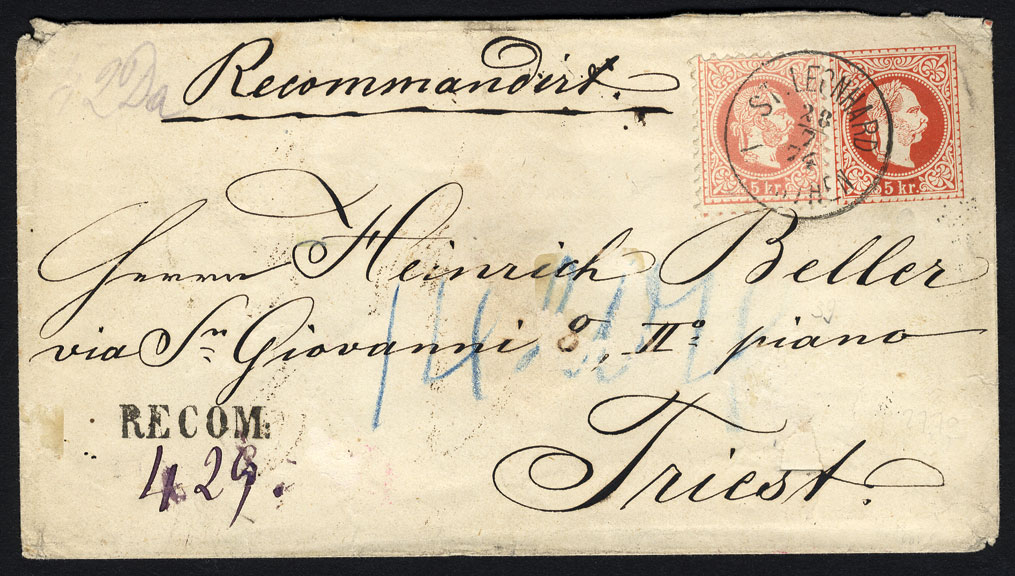 Recommandirt.
ST. LEONHARD
28
5 kr. 5 kr.
Herrn Heinrich Beller
via Sn Giovanni 8, IIo piano
RECOM:
429.
Triest.